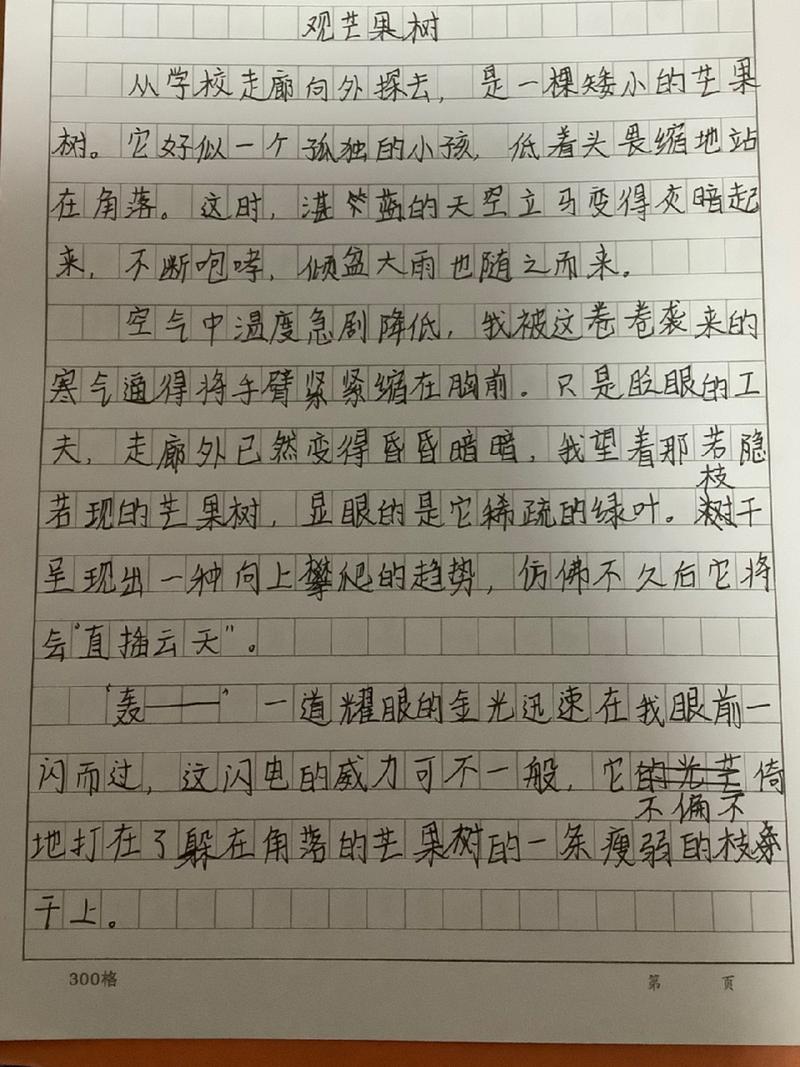 观芒果树
从学校走廊向外探去，是一棵矮小的芒果
树。它好似一个孤独的小孩，低着头畏缩地站
在角落。这时，湛蓝的天空立马变得灰暗起
来，不断咆哮，倾盆大雨也随之而来。
空气中温度急剧降低，我被这卷卷袭来的
寒气逼得将手臂紧紧缩在胸前。只是眨眼的工
夫，走廊外已然变得昏昏暗暗，我望着那若隐
若现的芒果树，显眼的是它稀疏的绿叶。枝干
呈现出一种向上攀爬的趋势，仿佛不久后它将
会“直插云天”。
“轰——”一道耀眼的金光迅速在我眼前一
闪而过，这闪电的威力可不一般，它不偏不倚
地打在了躲在角落的芒果树的一条瘦弱的枝
干上。
300格 第 页